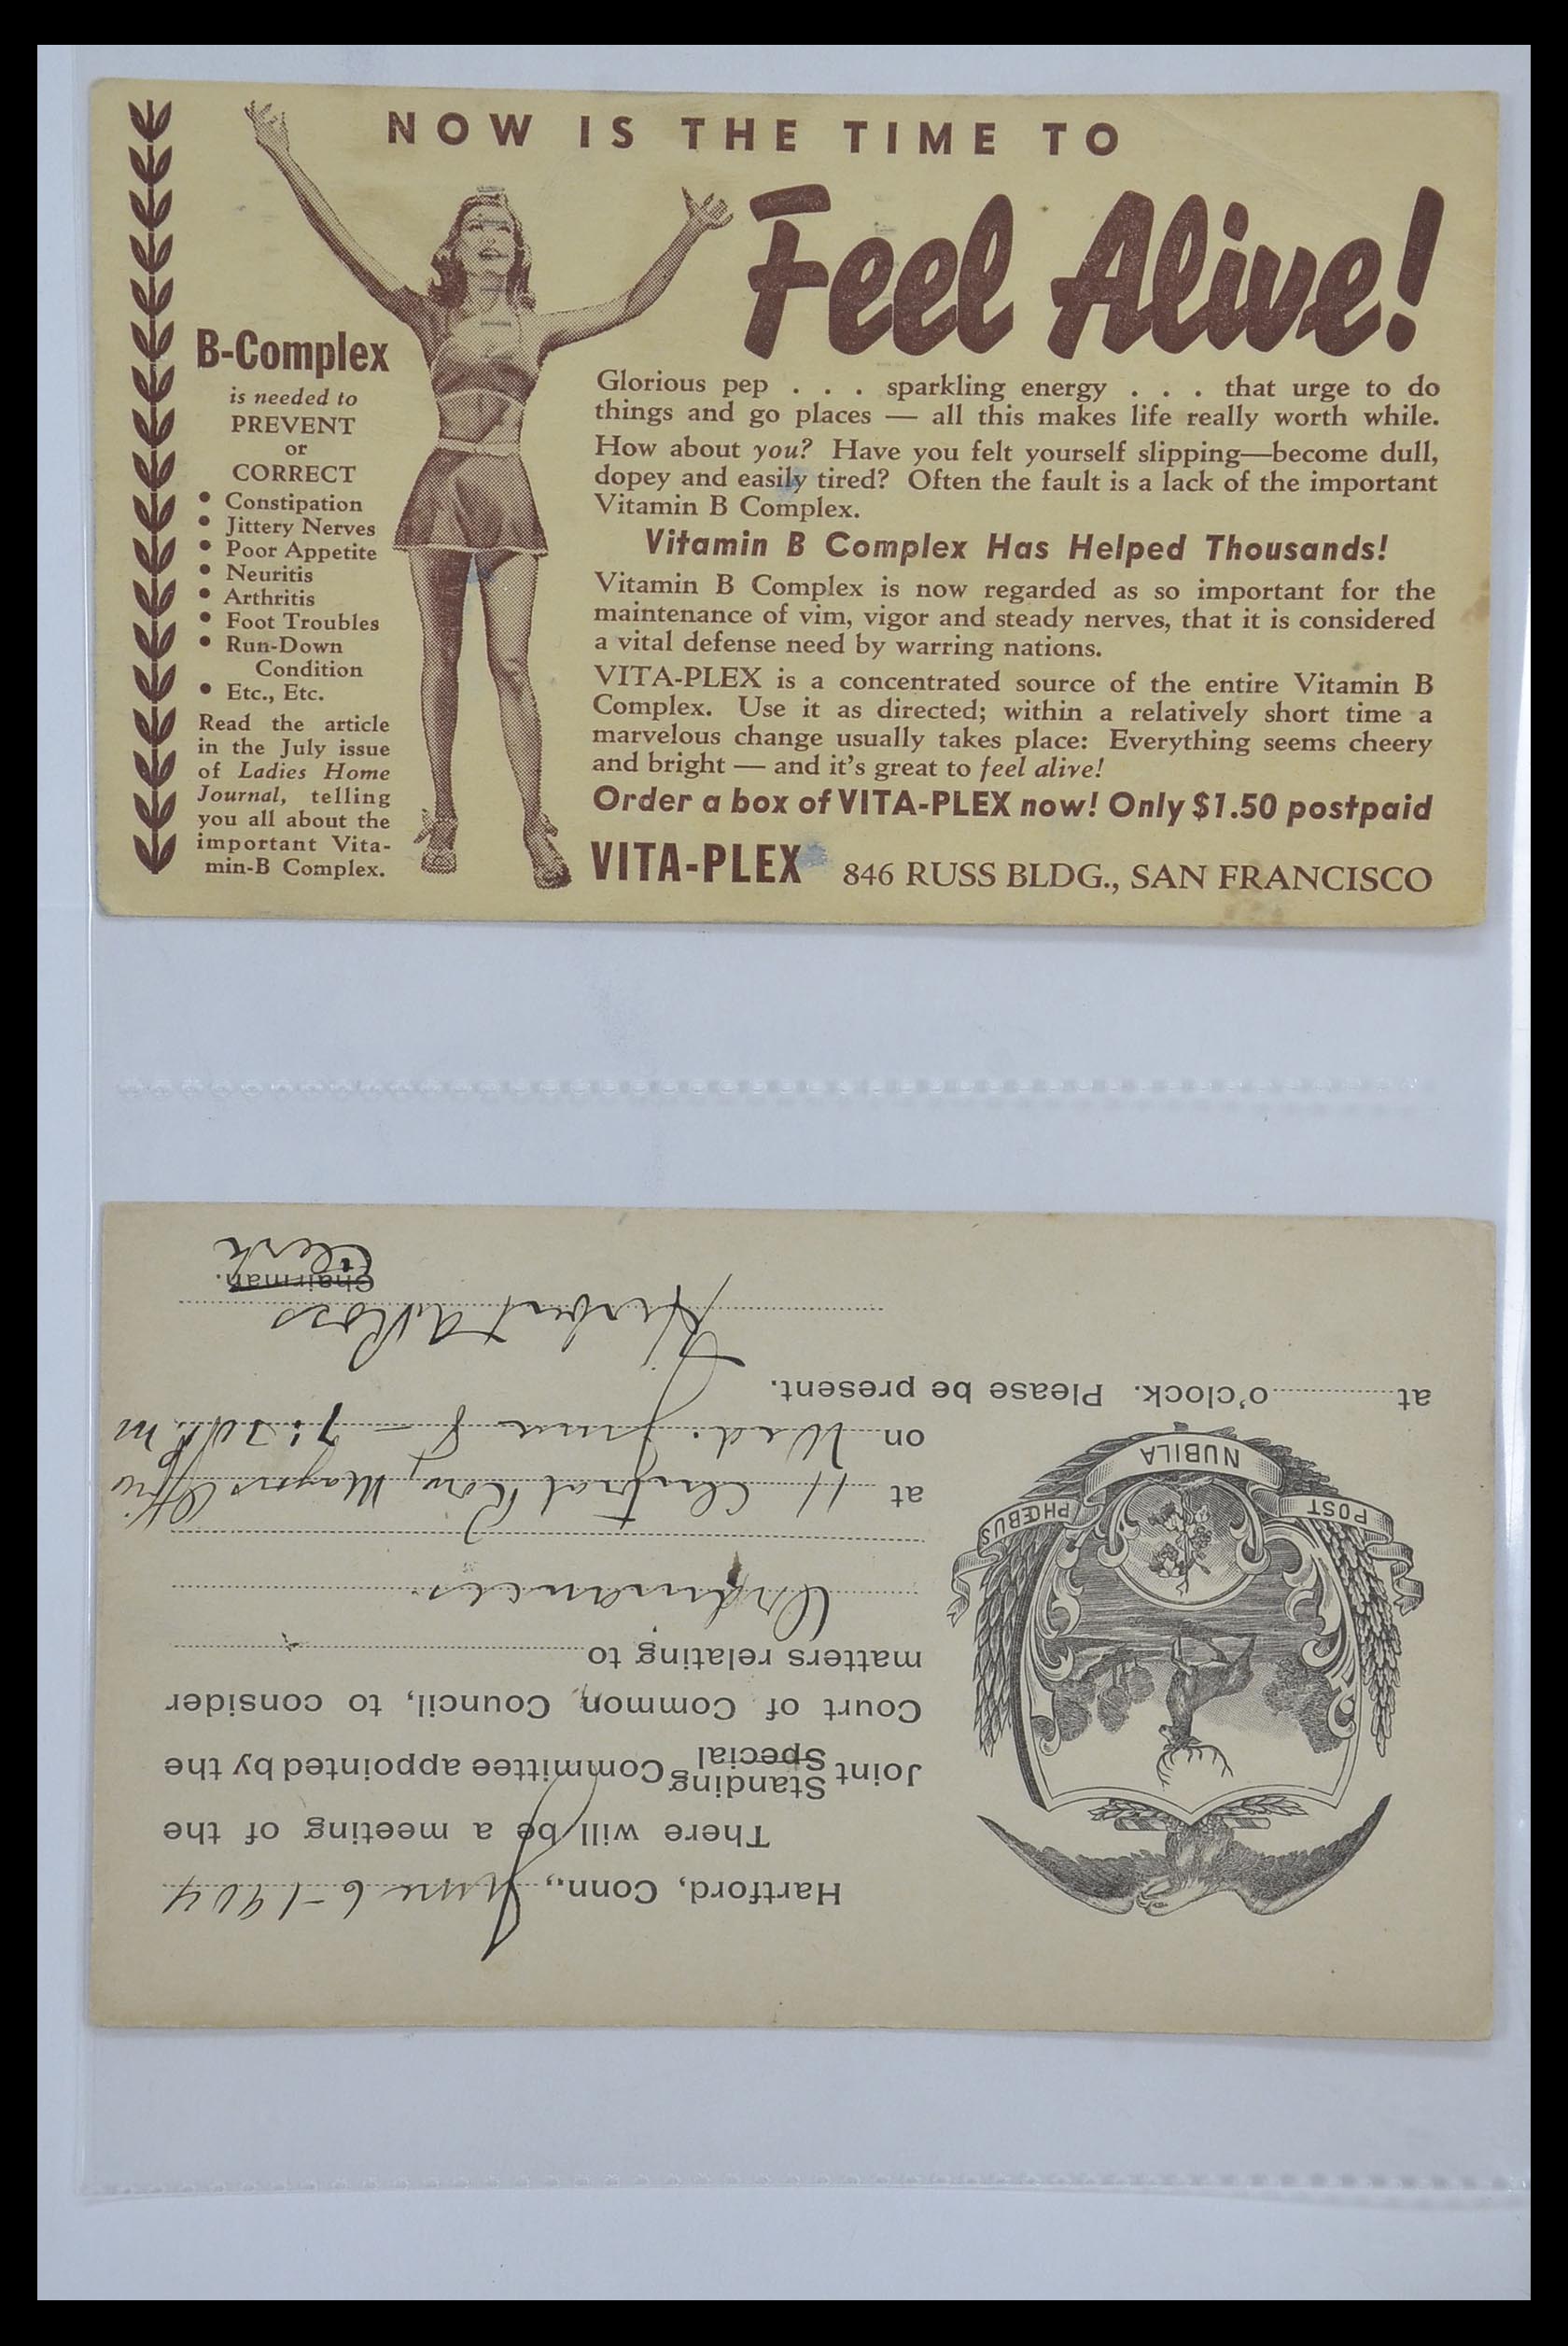 NOW IS THE TIME TO
Feel Alive!
B-Complex
is needed to
PREVENT
or
CORRECT
• Constipation
• Jittery Nerves
• Poor Appetite
• Neuritis
• Arthritis
• Foot Troubles
• Run-Down
Condition
• Etc., Etc.
Read the article
in the July issue
of Ladies Home
Journal, telling
you all about the
important Vita-
min-B Complex.
Glorious pep . . . sparkling energy . . . that urge to do
things and go places — all this makes life really worth while.
How about you? Have you felt yourself slipping—become dull,
dopey and easily tired? Often the fault is a lack of the important
Vitamin B Complex.
Vitamin B Complex Has Helped Thousands!
Vitamin B Complex is now regarded as so important for the
maintenance of vim, vigor and steady nerves, that it is considered
a vital defense need by warring nations.
VITA-PLEX is a concentrated source of the entire Vitamin B
Complex. Use it as directed; within a relatively short time a
marvelous change usually takes place: Everything seems cheery
and bright — and it's great to feel alive!
Order a box of VITA-PLEX now! Only $1.50 postpaid
VITA-PLEX 846 RUSS BLDG., SAN FRANCISCO
Hartford, Conn., June 6-1904
There will be a meeting of the
Joint Standing Special Committee appointed by the
Court of Common Council, to consider
matters relating to
Ordinances
at 11 Central Row, Mayors Office
on Wed. June 8 - 7:30 P.m
at o'clock. Please be present.
Herbert A. Ross
Chairman.
Clerk
POST
NUBILA
PHŒBUS